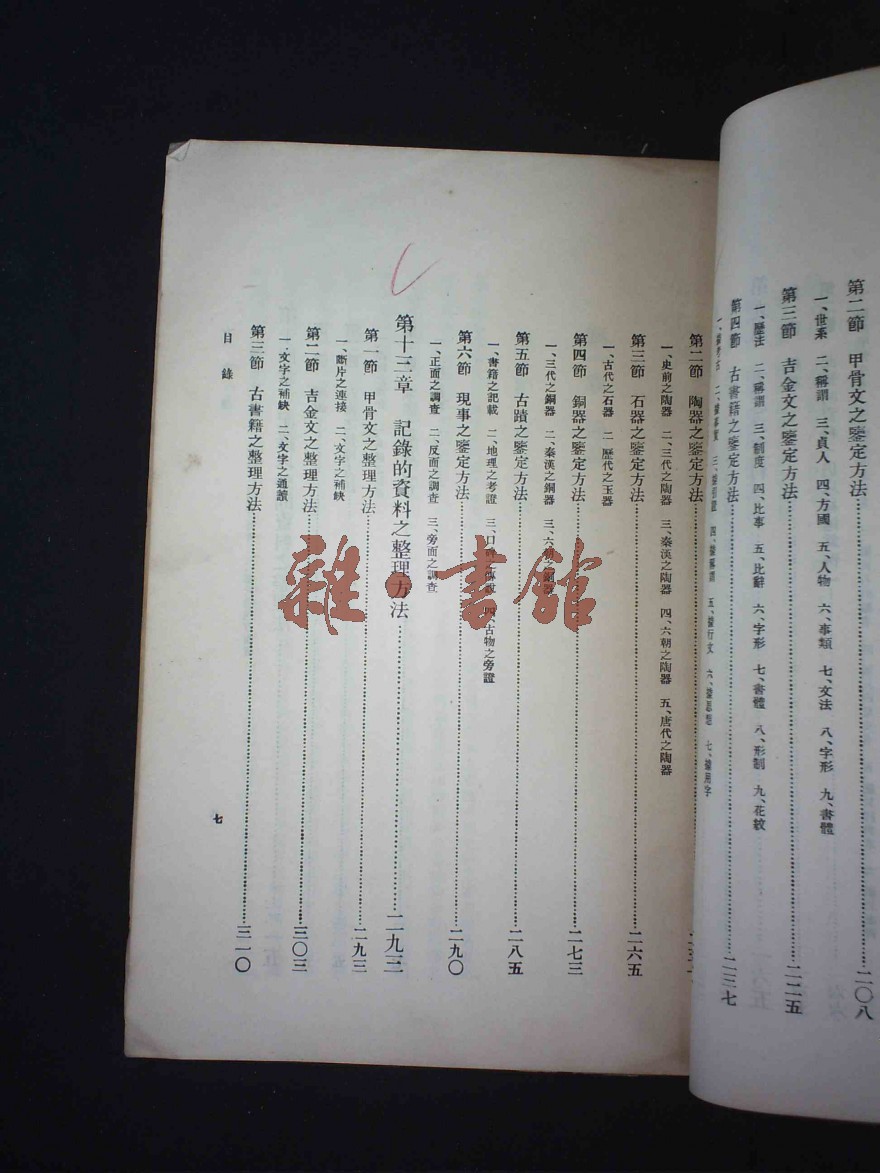 第二節 甲骨文之鑒定方法……二〇八
一、世系 二、稱謂 三、貞人 四、方國 五、人物 六、事類 七、文法 八、字形 九、書體
第三節 吉金文之鑒定方法……二二五
一、曆法 二、稱謂 三、制度 四、比事 五、比辭 六、字形 七、書體 八、形制 九、花紋
第四節 古書籍之鑒定方法……二三七
四、據稱謂 五、據行文 六、據思想 七、據用字
第二節 陶器之鑒定方法……
一、史前之陶器 二、三代之陶器 三、秦漢之陶器 四、六朝之陶器 五、唐代之陶器
第三節 石器之鑒定方法……二六五
一、古代之石器 二、歷代之玉器
第四節 銅器之鑒定方法……二七三
一、三代之銅器 二、秦漢之銅器 三、六朝之銅器
第五節 古蹟之鑒定方法……二八五
一、書籍之記載 二、地理之考證 三、口碑之傳說 四、古物之旁證
第六節 現事之鑒定方法……二九〇
一、正面之調查 二、反面之調查 三、旁面之調查
第十三章 記錄的資料之整理方法……二九三
第一節 甲骨文之整理方法……二九三
一、斷片之連接 二、文字之補缺
第二節 吉金文之整理方法……三〇三
一、文字之補缺 二、文字之通讀
第三節 古書籍之整理方法……三一〇
目錄
七
雜·書館